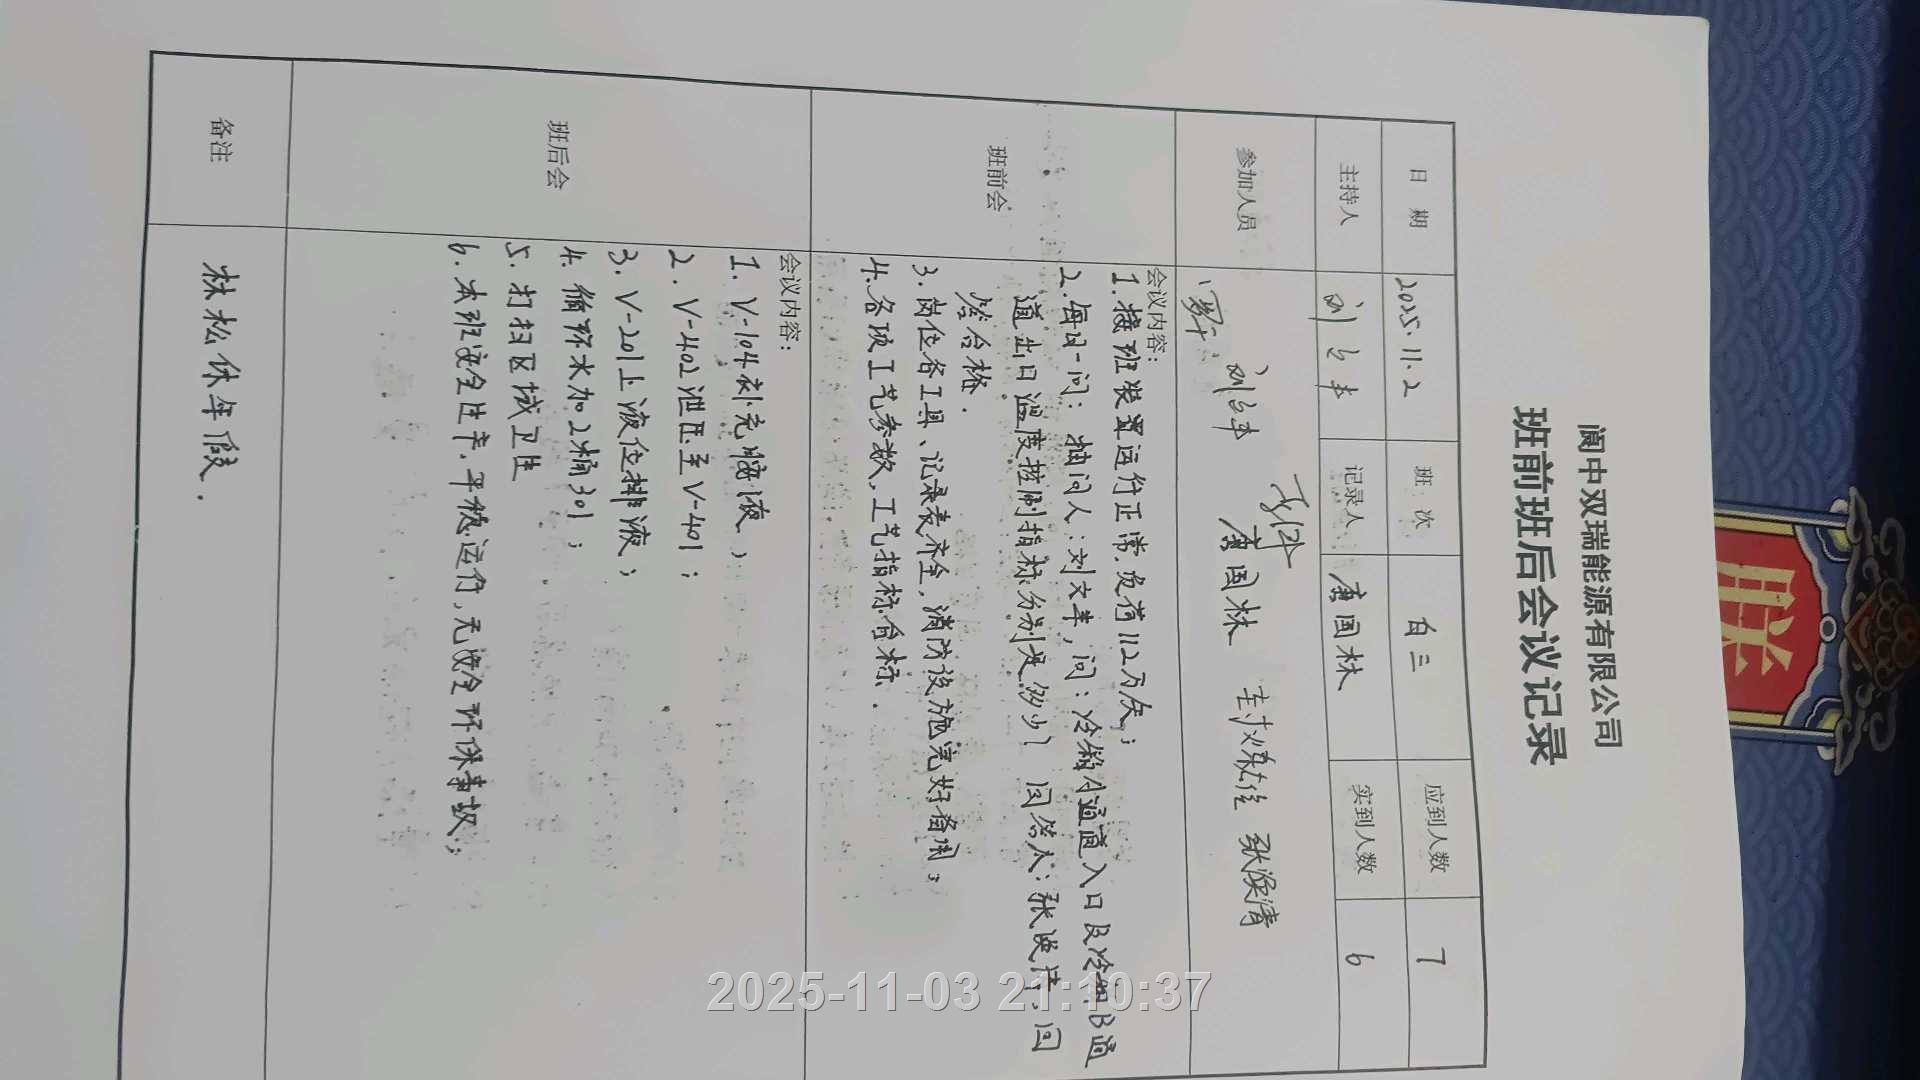 阆中双瑞能源有限公司
班前班后会议记录
日 期 2025.11.2 班 次 白三 应到人数 7
主持人 记录人 唐国林 实到人数 6
参加人员
唐国林 张涣清
班前会
会议内容：
1.接班装置运行正常.负荷112万方;
2.每日一问：抽问人：刘大丰,问：冷箱A通道入口及冷箱B通
道出口温度控制指标分别是多少？ 回答人：张涣清,回
答合格.
3.岗位各工具、记录表齐全,消防设施完好备用;
4.各项工艺参数,工艺指标合标.
班后会
会议内容：
1. V-104补充胺液;
2. V-402泄压至V-401;
3. V-201上液位排液;
4. 循环水加2桶301;
5. 打扫区域卫生
6. 本班安全生产.平稳运行,无安全环保事故;
备注
林松休年假.
2025-11-03 21:10:37